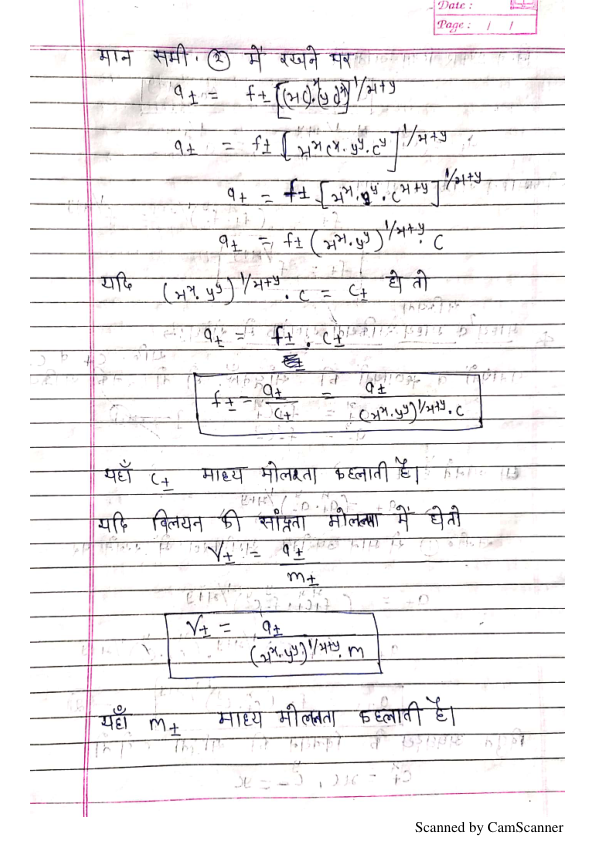 Date :
Page : / /
मान समी. ② में रखने पर
a± = f± [(xc)ˣ(yc)ʸ]^1/x+y
a± = f± [xˣcˣ. yʸ. cʸ]^1/x+y
a± = f± [xˣ. yʸ. c^x+y]^1/x+y
a± = f± (xˣ. yʸ)^1/x+y. c
यदि (xˣ. yʸ)^1/x+y . c = c± हो तो
a± = f± . c±
f± = a±/c± = a±/(xˣ. yʸ)^1/x+y. c
यहाँ c± माध्य मोलरता कहलाती है।
यदि विलयन की सांद्रता मोललता में होतो
γ± = a±/m±
γ± = a±/(xˣ. yʸ)^1/x+y. m
यहाँ m± माध्य मोललता कहलाती है।
Scanned by CamScanner